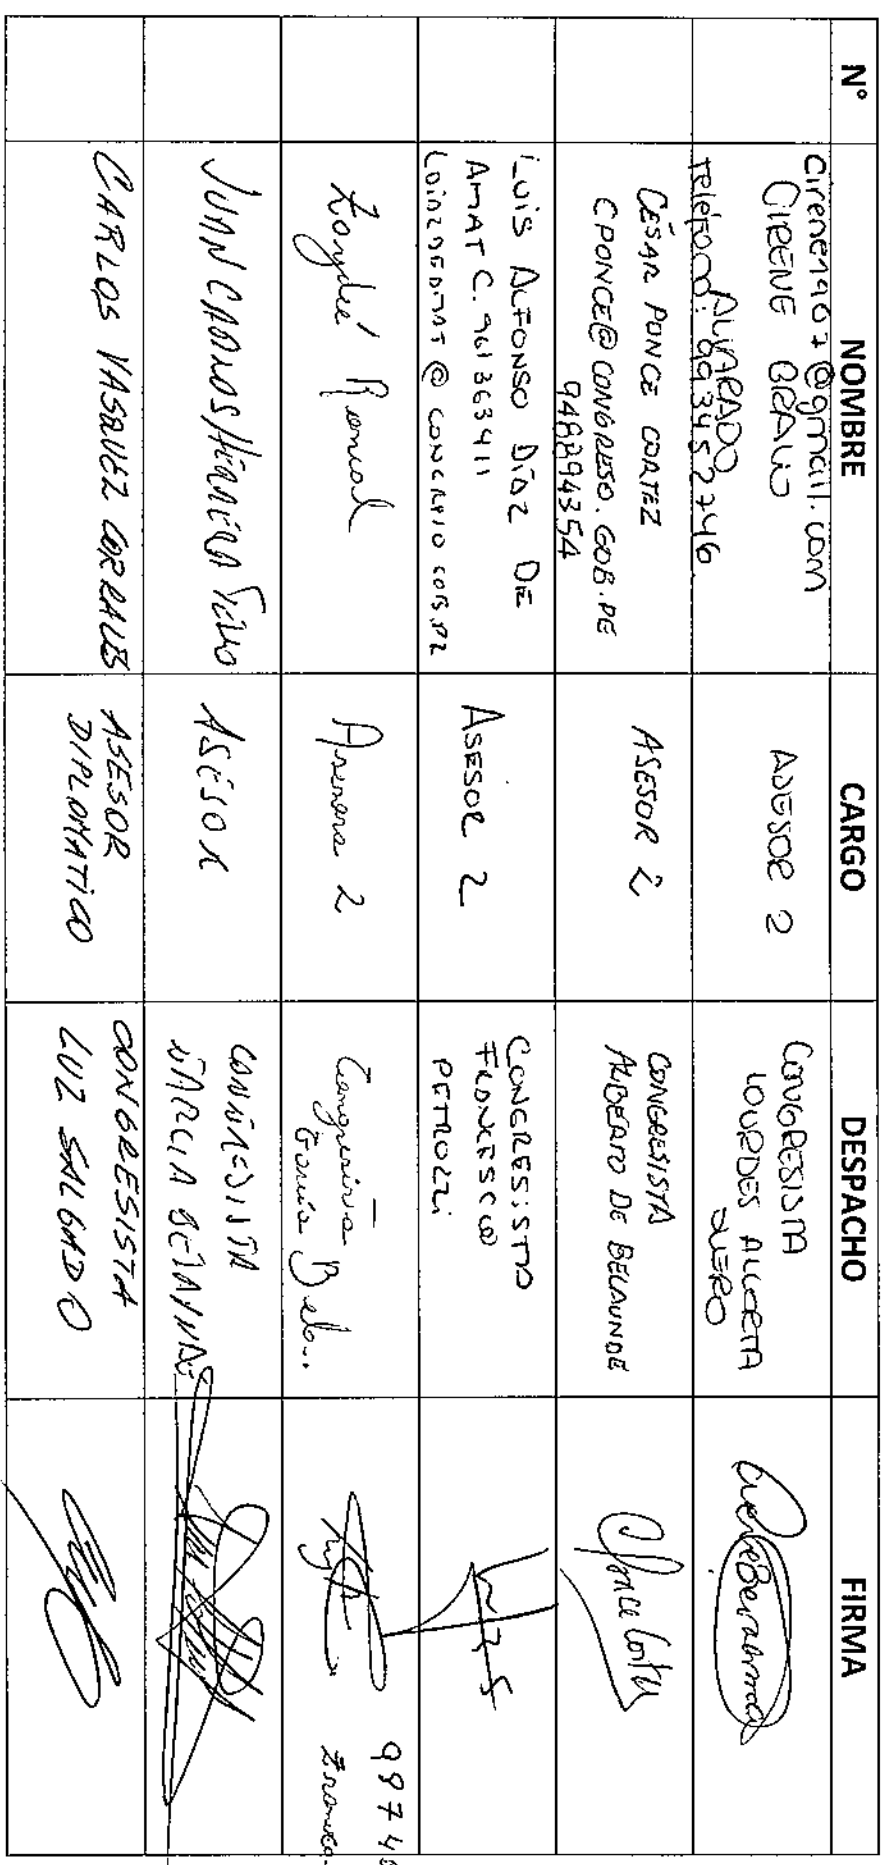 N° NOMBRE CARGO DESPACHO FIRMA
cirene1907@gmail.com
CIRENE BRAVO
ALVARADO
Teléfono: 993452746
ASESOR 2
CONGRESISTA
LOURDES ALCORTA
SUERO
CÉSAR PONCE CORTEZ
CPONCE@CONGRESO.GOB.PE
948894354
ASESOR 2
CONGRESISTA
ALBERTO DE BELAUNDE
Ponce Cortez
LUIS ALFONSO DÍAZ DE
AMAT C. 961363411
ASESOR 2
CONGRESISTA
FRANCESCO
PETROZZI
Asesora 2
Congresista
JUAN CARLOS
ASESOR
CONGRESISTA
CARLOS VASQUEZ CORRALES
ASESOR
DIPLOMATICO
CONGRESISTA
LUZ SALGADO